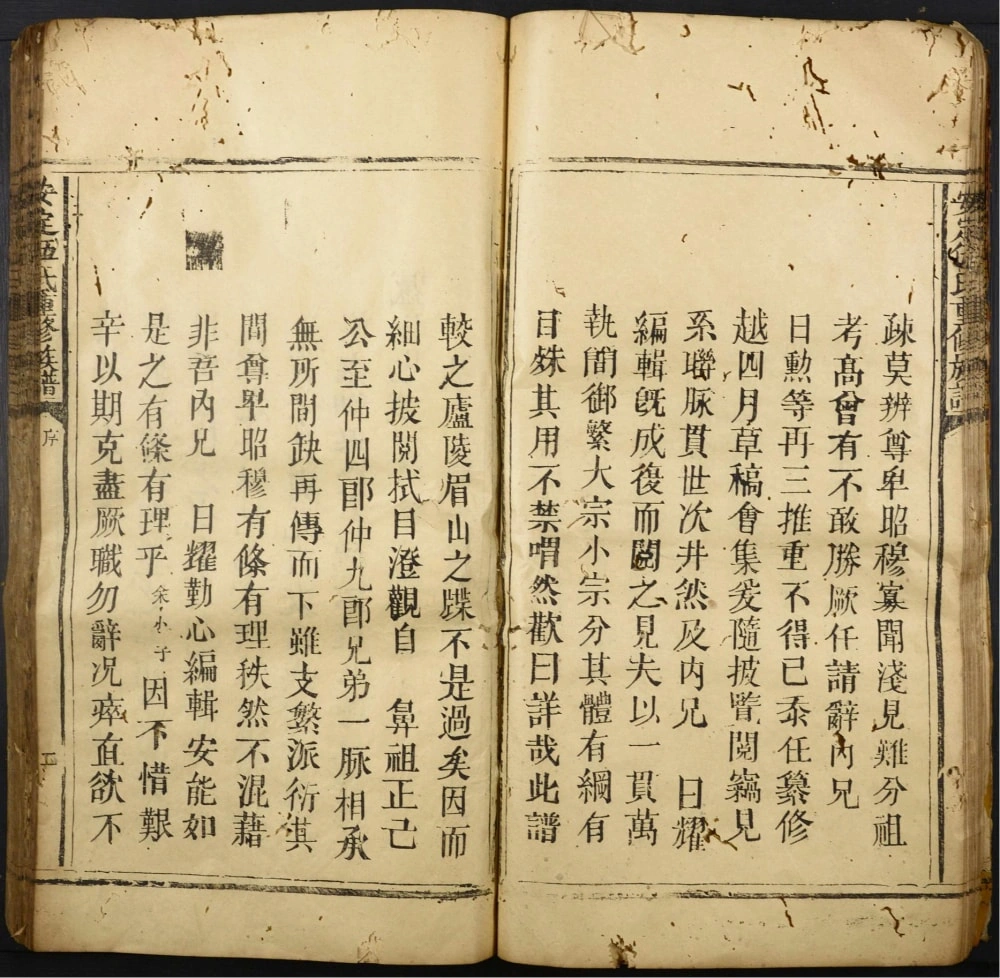 安定伍氏重修族譜
疎莫辨尊卑昭穆寡聞淺見難分祖
考高曾有不敢勝厥任請辭內兄
日勲等再三推重不得已忝任纂修
越四月草稿會集爰隨披覽閱竊見
系聯脉貫世次井然及内兄 日耀
編輯旣成復而閱之見夫以一貫萬
執簡御繁大宗小宗分其體有綱有
目殊其用不禁喟然歎曰詳哉此譜
較之廬陵眉山之牒不是過矣因而
細心披閱拭目澄觀自 鼻祖正己
公至仲四郎仲九郎兄弟一脉相承
無所間缺再傳而下雖支繁派衍其
間尊卑昭穆有條有理秩然不混藉
非吾內兄 日耀勤心編輯安能如
是之有條有理乎余小子因不惜艱
辛以期克盡厥職勿辭况瘁直欲不
安定伍氏重修族譜 序